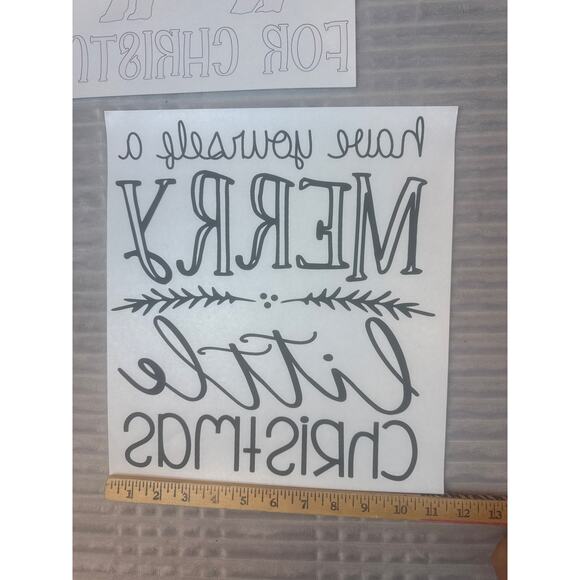 FOR CHRIST
have yourself a
MERRY
little
CHRISTMAS
1 2 3 4 5 6 7 8 9 10 11 12 13